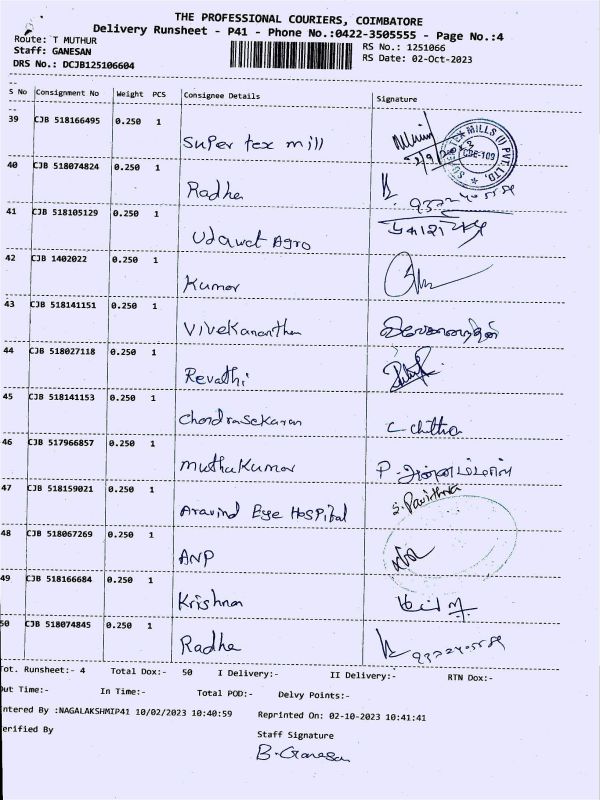 THE PROFESSIONAL COURIERS, COIMBATORE
Delivery Runsheet - P41 - Phone No.:0422-3505555 - Page No.:4
Route: T MUTHUR
RS No.: 1251066
Staff: GANESAN
RS Date: 02-Oct-2023
DRS No.: DCJB125106604
S No Consignment No Weight PCS Consignee Details Signature
39 CJB 518166495 0.250 1
Super tex mill
SUPERTEX MILLS (I) PVT. LTD. CBE-109
40 CJB 518074824 0.250 1
Radha
41 CJB 518105129 0.250 1
Udawat Agro
42 CJB 1402022 0.250 1
Kumar
43 CJB 518141151 0.250 1
Vivekananthan
44 CJB 518027118 0.250 1
Revathi
45 CJB 518141153 0.250 1
Chandrasekaran C chithra
46 CJB 517966857 0.250 1
Muthukumar P.
47 CJB 518159021 0.250 1
Aravind Eye Hospital S. Pavithra
48 CJB 518067269 0.250 1
ANP
49 CJB 518166684 0.250 1
Krishnan
50 CJB 518074845 0.250 1
Radha
Tot. Runsheet:- 4 Total Dox:- 50 I Delivery:- II Delivery:- RTN Dox:-
Out Time:- In Time:- Total POD:- Delvy Points:-
ntered By :NAGALAKSHMIP41 10/02/2023 10:40:59 Reprinted On: 02-10-2023 10:41:41
erified By Staff Signature
B. Ganesan